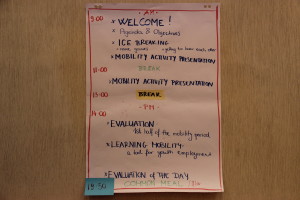 AM
9:00 WELCOME!
Agenda & Objectives
ICE BREAKING
name games getting to know each other
MOBILITY ACTIVITY PRESENTATION
11:00 BREAK
MOBILITY ACTIVITY PRESENTATION
13:00 BREAK
PM
14:00
EVALUATION
1st half of the mobility period
LEARNING MOBILITY
a tool for youth employment
EVALUATION OF THE DAY
18:30